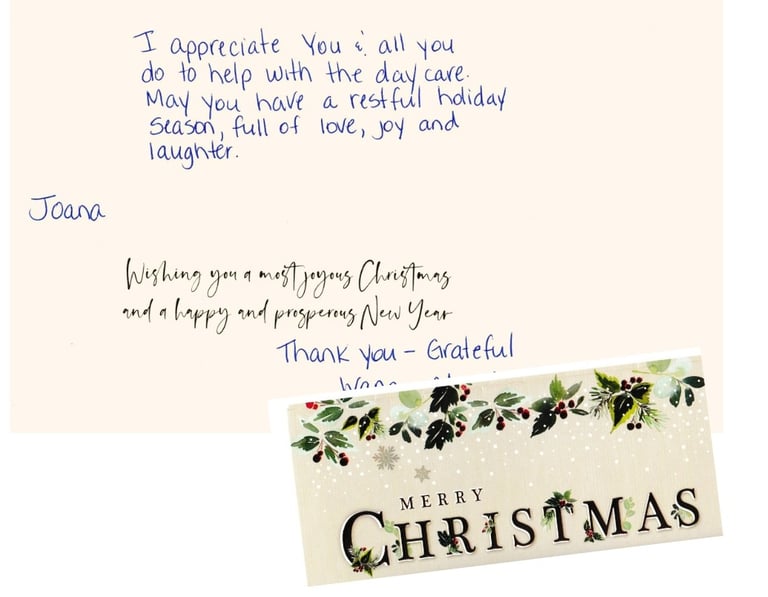 I appreciate You & all you
do to help with the day care.
May you have a restful holiday
season, full of love, joy and
laughter.
Joana
Wishing you a most joyous Christmas
and a happy and prosperous New Year
Thank you - Grateful
MERRY
CHRISTMAS